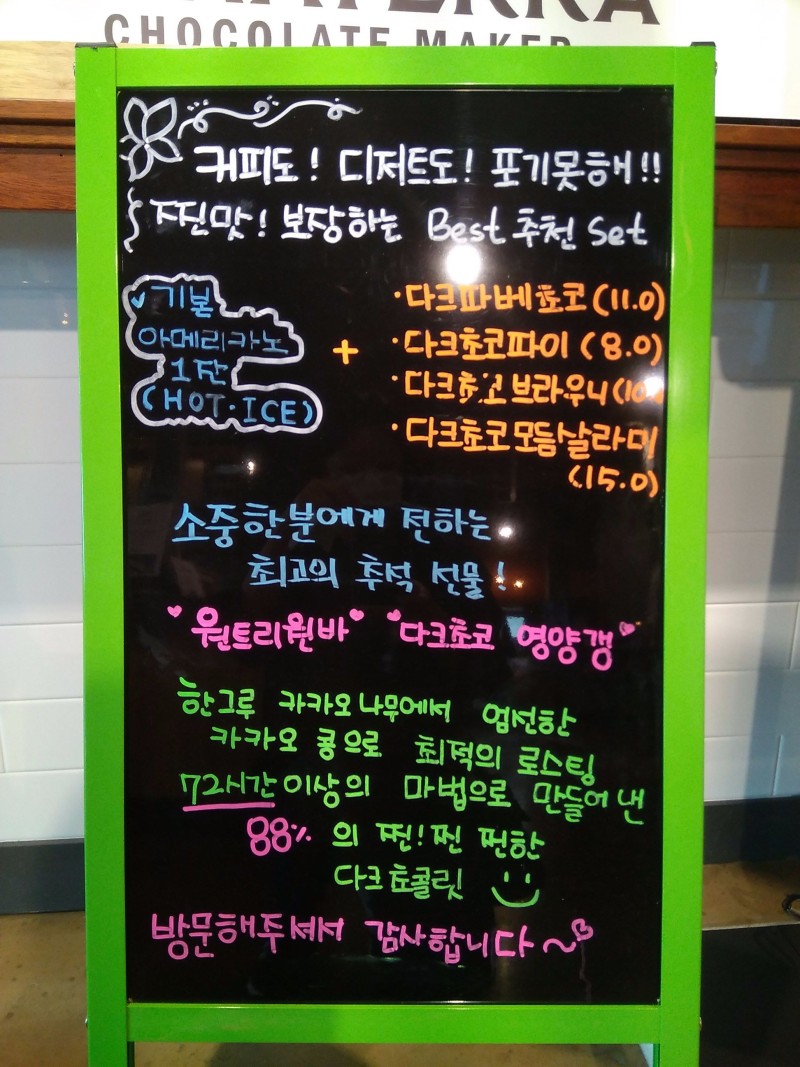 CHOCOLATE MAKER
커피도! 디저트도! 포기못해!!
찐맛! 보장하는 Best 추천 Set
기본
아메리카노
1잔
(HOT·ICE)
+
·다크파베쵸코(11.0)
·다크쵸코파이(8.0)
·다크쵸코브라우니(10
·다크쵸코모듬살라미
(15.0)
소중한분에게 전하는
최고의 추석 선물!
"원트리원바" "다크쵸코 영양갱"
한그루 카카오나무에서 엄선한
카카오 콩으로 최적의 로스팅
72시간이상의 마법으로 만들어낸
88% 의 찐!찐 찐한
다크쵸콜릿
방문해주셔서 감사합니다~